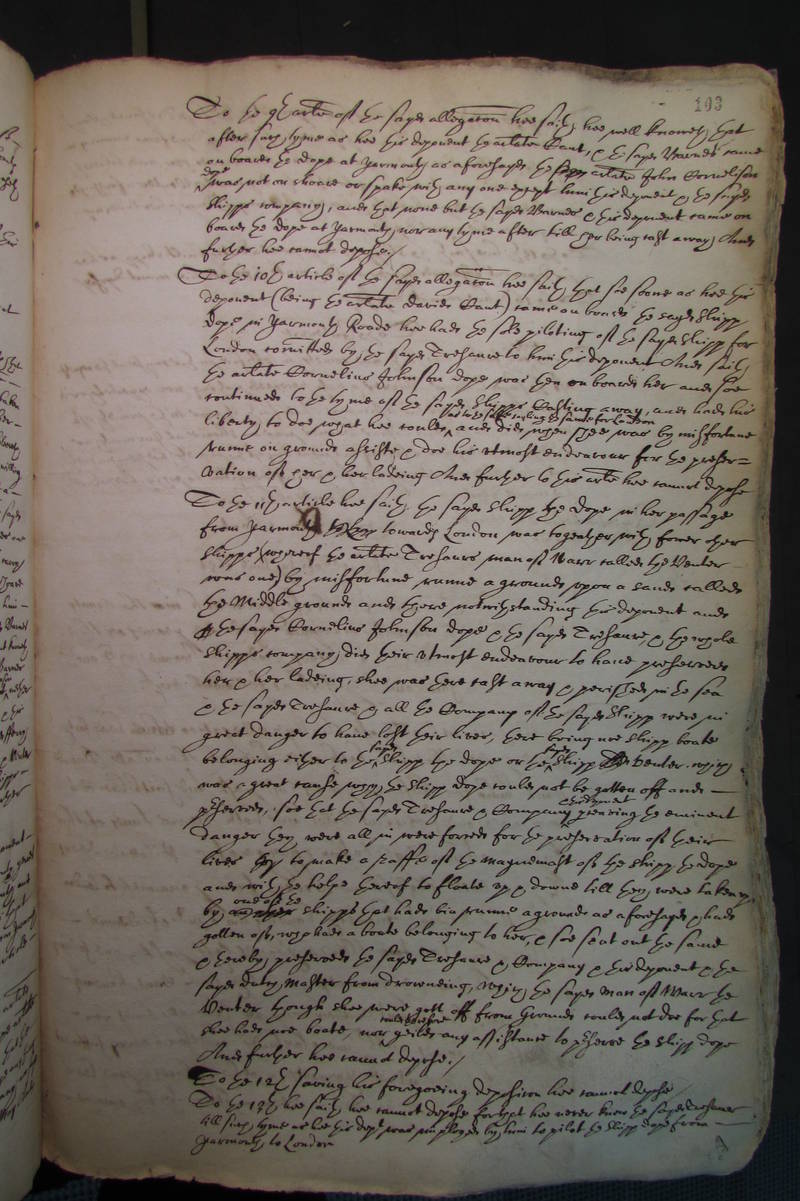 193
To the 9th article of the sayd allegation hee saith, hee well knoweth that
after such tyme as hee this deponent the arlate Cant, & the sayd Barnes came
on board the Hope at Yarmouth as aforesayd the arlate John Cornelison
Hope was not on shoare or spake with any one except him this deponent & the sayd
shipps company, and that none but the sayd Barnes & this deponent came on
board the Hope at Yarmouth, nor any tyme after till her being cast away, And
further hee cannot depose./
To the 10th article of the sayd allegation hee saith that soe soone as hee this
deponent (being the arlate David Cant) came on board the sayd shipp
Hope in Yarmouth Roade hee had the sole piloting of the sayd shipp for
London comitted by the sayd Tresaure to him this deponent And saith
the arlate Cornelius Johnson Hope was then on board her and soe
continued to the tyme of the sayd shipps casting away, and had his
liberty to doe what hee could in the sayling the same for London and did when shee was by misfortune
runne on ground assiste & doe his utmost endeavour for the preser=
vation of her & her ladeing And further to this arlte hee cannot depose
To the 11th article hee saith the sayd shipp the Hope in her passage
from Yarmouth towards London was together with fower other
shipps (whereof the arlate Tresaurs man of Warr called the Venter
was one) by misfortune runne a ground upon a sand called
the Middle ground and there notwithstanding this deponent and
the sayd Cornelius Johnson Hope & the sayd Tresaure, & the whole
shipps company did their utmost endeavour to have preserved
her & her ladeing, shee was there cast away & perished in the sea
& the sayd Tresaure & all the Company of the sayd shipp were in
great danger to have lost their lives, there being noe shipp boate
belonging either to the sayd shipp the Hope or the sayd shipp Venter which
was a great cause why the shipp Hope could not be gotten off and
preserved, soe that the sayd Tresaure & Company & this deponent seeing the eminent
danger they were all in were forced for the preservation of their
lives to make a raffe of the mayne mast of the shipp the Hope
and with the helpe thereof to floate up & downe till they were taken up
by one of the shipps that had bin runne a ground as aforesayd & had
gotten off, which had a boate belonging to her, & soe sent out the same
& thereby preserved the sayd Tresaure & Company & this deponent & the
sayd dutch Master from drowneing, which the sayd Man of Warr the
Venter though shee were gott off from ground could not doe for that
shee had noe boate, nor could shee yeild any assistance to preserve the shipp Hope
And further hee cannot depose./
To the 12th saving his foregoeing deposition hee cannot depose
To the 13th hee saith hee cannot depose for that hee never knew the sayd Tresaure
till such tyme as hee this dept was imployed by him to pilot the shipp Hope from
Yarmouth to London